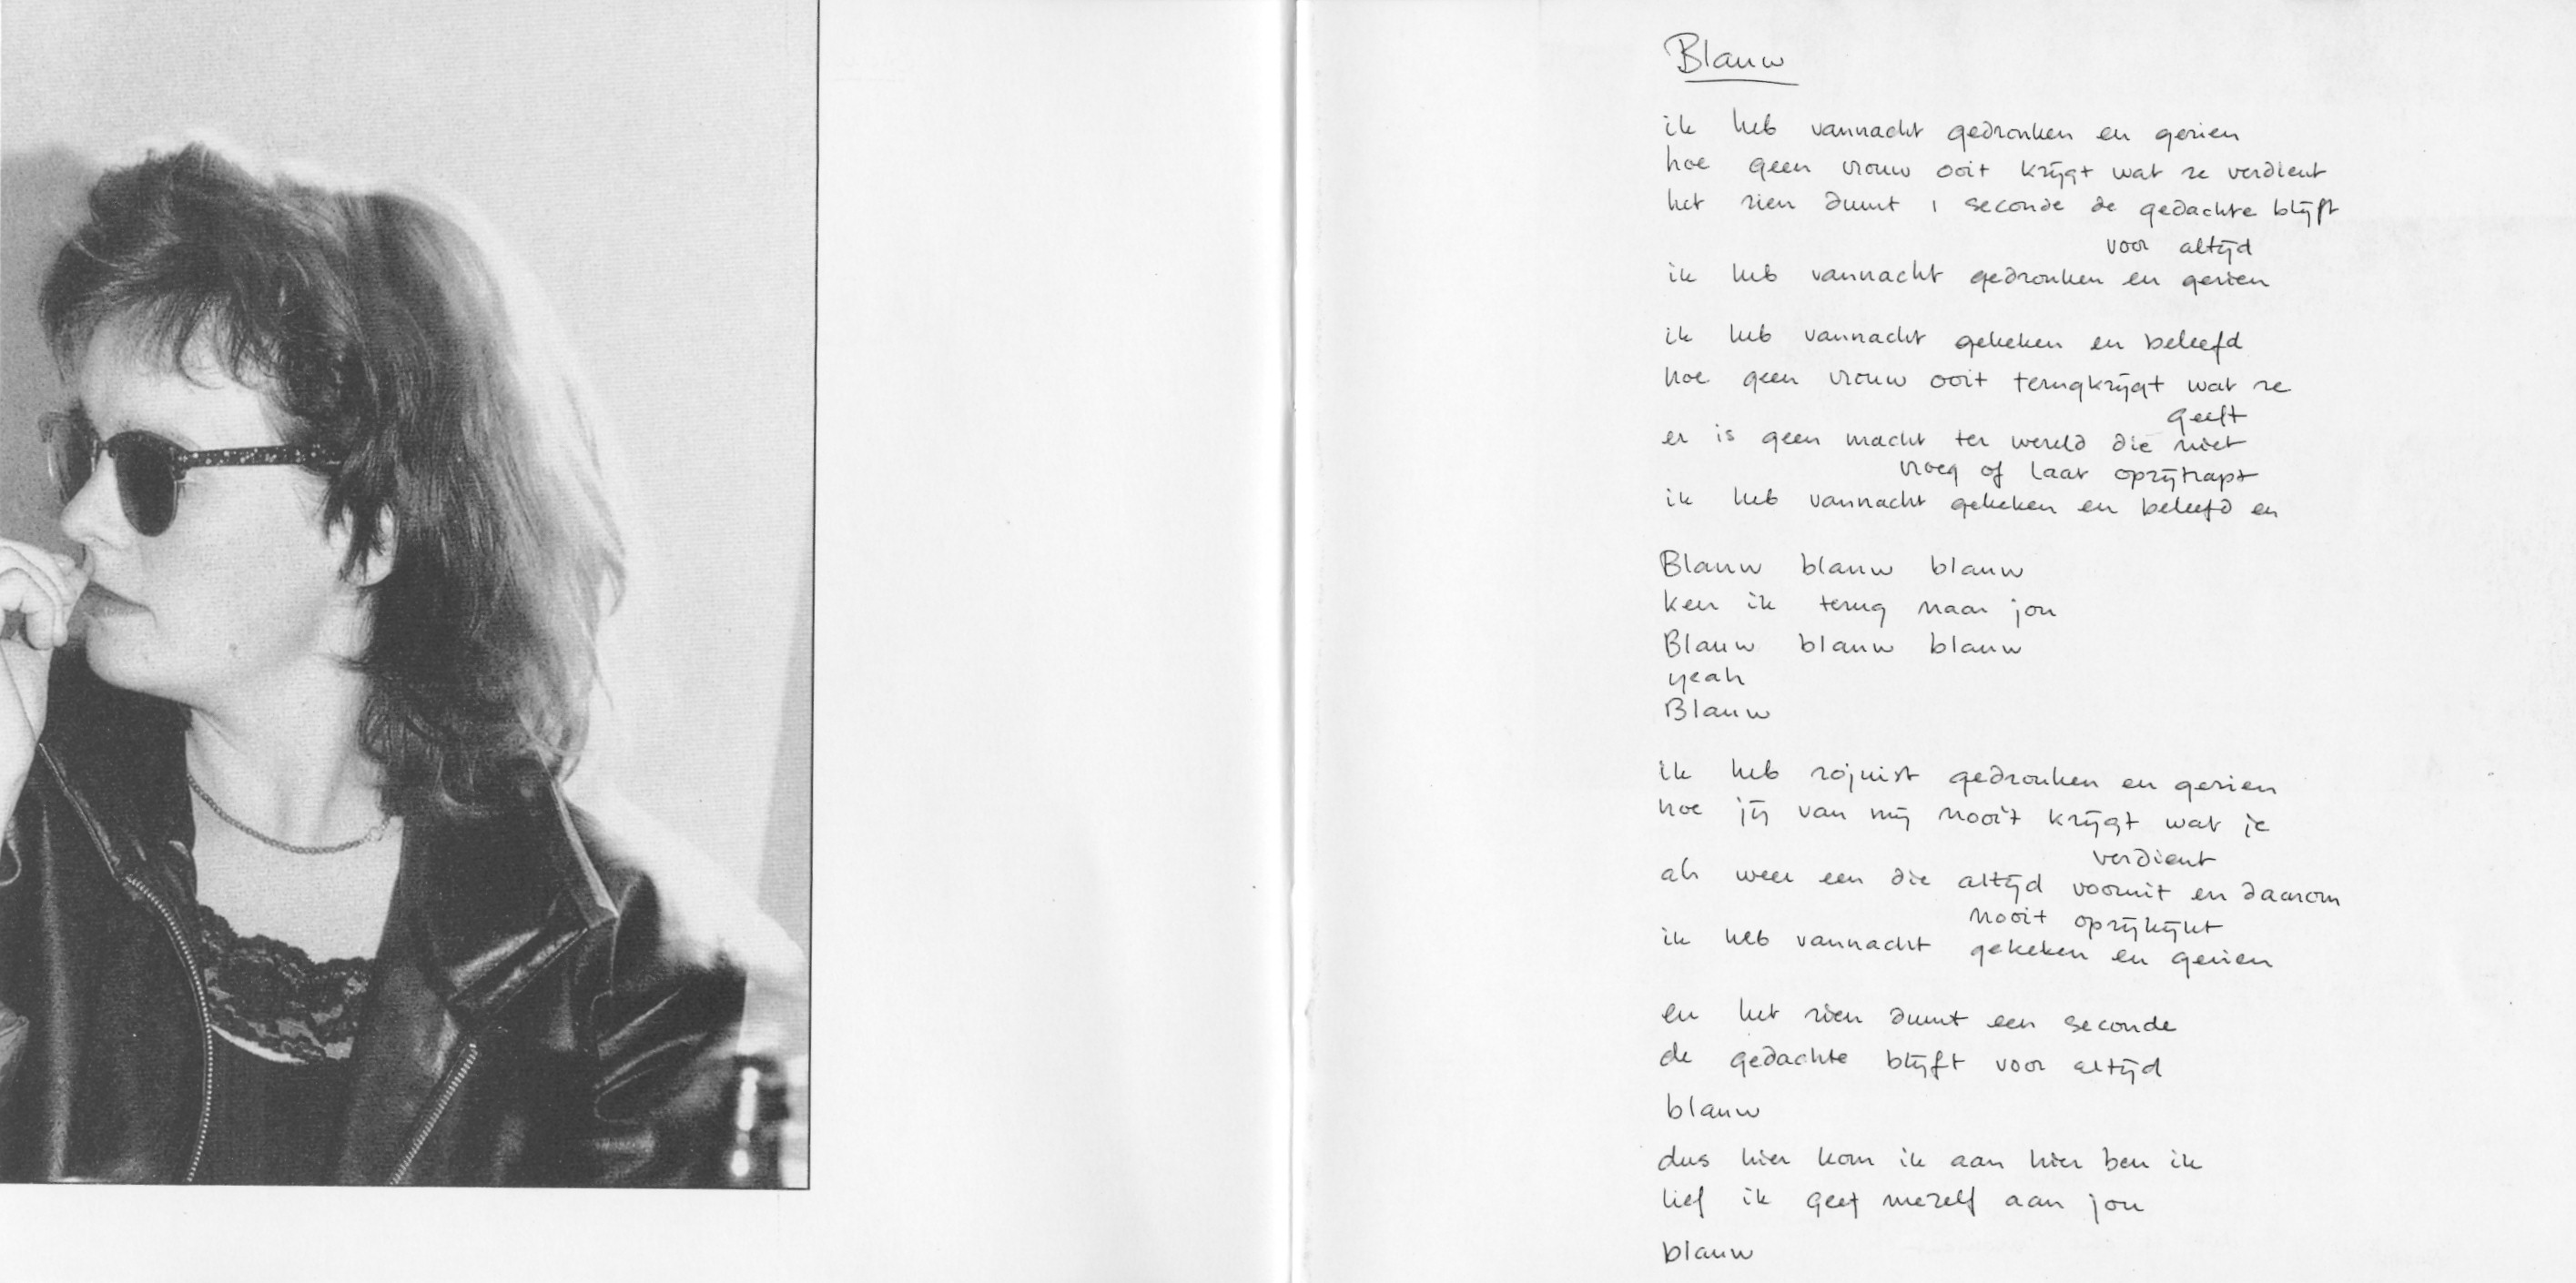 Blauw
ik heb vannacht gedronken en gezien
hoe geen vrouw ooit krijgt wat ze verdient
het zien duurt 1 seconde de gedachte blijft
voor altijd
ik heb vannacht gedronken en gezien
ik heb vannacht gekeken en beleefd
hoe geen vrouw ooit terugkrijgt wat ze
geeft
er is geen macht ter wereld die niet
vroeg of laat opzijtrapt
ik heb vannacht gekeken en beleefd en
Blauw blauw blauw
ken ik terug naar jou
Blauw blauw blauw
yeah
Blauw
ik heb zojuist gedronken en gezien
hoe jij van mij nooit krijgt wat je
verdient
als weer een die altijd vooruit en daarom
nooit opzijkijkt
ik heb vannacht gekeken en gezien
en het zien duurt een seconde
de gedachte blijft voor altijd
blauw
dus hier kom ik aan hier ben ik
lief ik geef mezelf aan jou
blauw